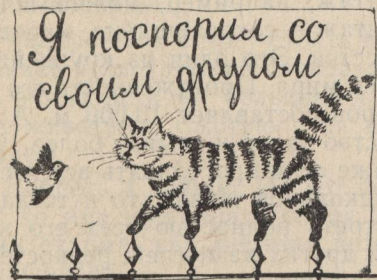 Я поспорил со
своим другом